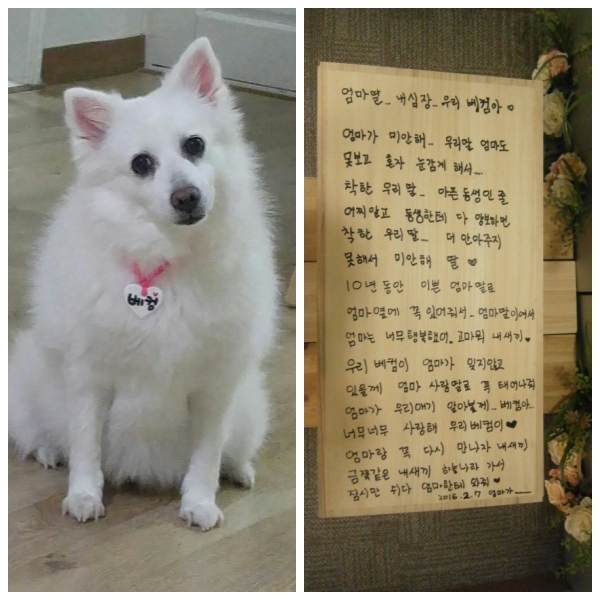 베컴
엄마딸.. 내심장.. 우리 베컴아 ♡
엄마가 미안해.. 우리딸 엄마도
못보고 혼자 눈감게 해서...
착한 우리 딸... 아픈 동생인 줄
어찌알고 동생한테 다 양보하던
착한 우리 딸... 더 안아주지
못해서 미안해 딸 ♥
10년 동안 이쁜 엄마딸로
엄마옆에 꼭 있어줘서.. 엄마딸이여서
엄마는 너무행복했어. 고마워 내새끼 ♥
우리 베컴이 엄마가 잊지않고
있을께 엄마 사랑딸로 꼭 태어나줘
엄마가 우리애기 알아볼게.. 베컴아..
너무너무 사랑해 우리베컴이 ♥
엄마랑 꼭 다시 만나자 내새끼
금쪽같은 내새끼 하늘나라 가서
잠시만 쉬다 엄마한테 와줘 ♥
2016.2.7 엄마가